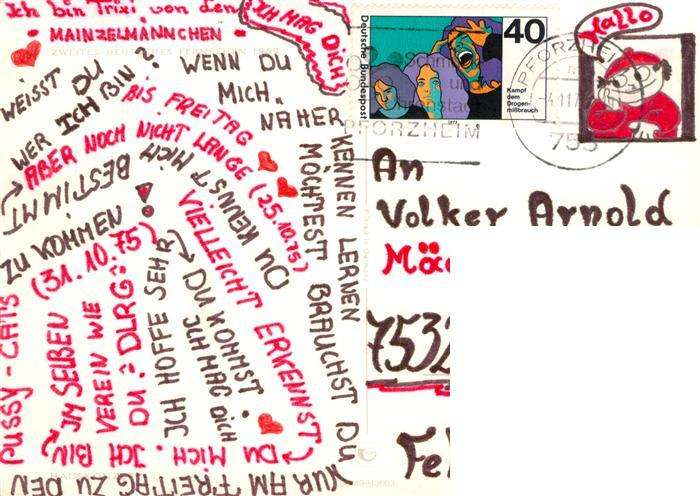 Ich bin Trixi von den
• MAINZELMÄNNCHEN •
ZWEITES DEUTSCHES FERNSEHEN
ICH MAG DICH!
WEISST DU
WER ICH BIN?
WENN DU
MICH
NÄHER
KENNEN LERNEN
MÖCHTEST BRAUCHST DU
NUR AM FREITAG ZU DEN
PUSSY-CATS
ZU KOMMEN
BESTIMMT
DU KENNST MICH
ABER NOCH NICHT LANGE (25.10.75)
VIELLEICHT ERKENNST
DU MICH. ICH BIN
IM SELBEN
VEREIN WIE
DU? DLRG?
BIS FREITAG
(31.10.75)
ICH HOFFE SEHR
DU KOMMST.
ICH MAG DICH
Deutsche Bundespost
40
Kampf
dem
Drogen-
mißbrauch
1975
PFORZHEIM
PFORZHEIM
753
Hallo
An
Volker Arnold
Mä
7532
Fe